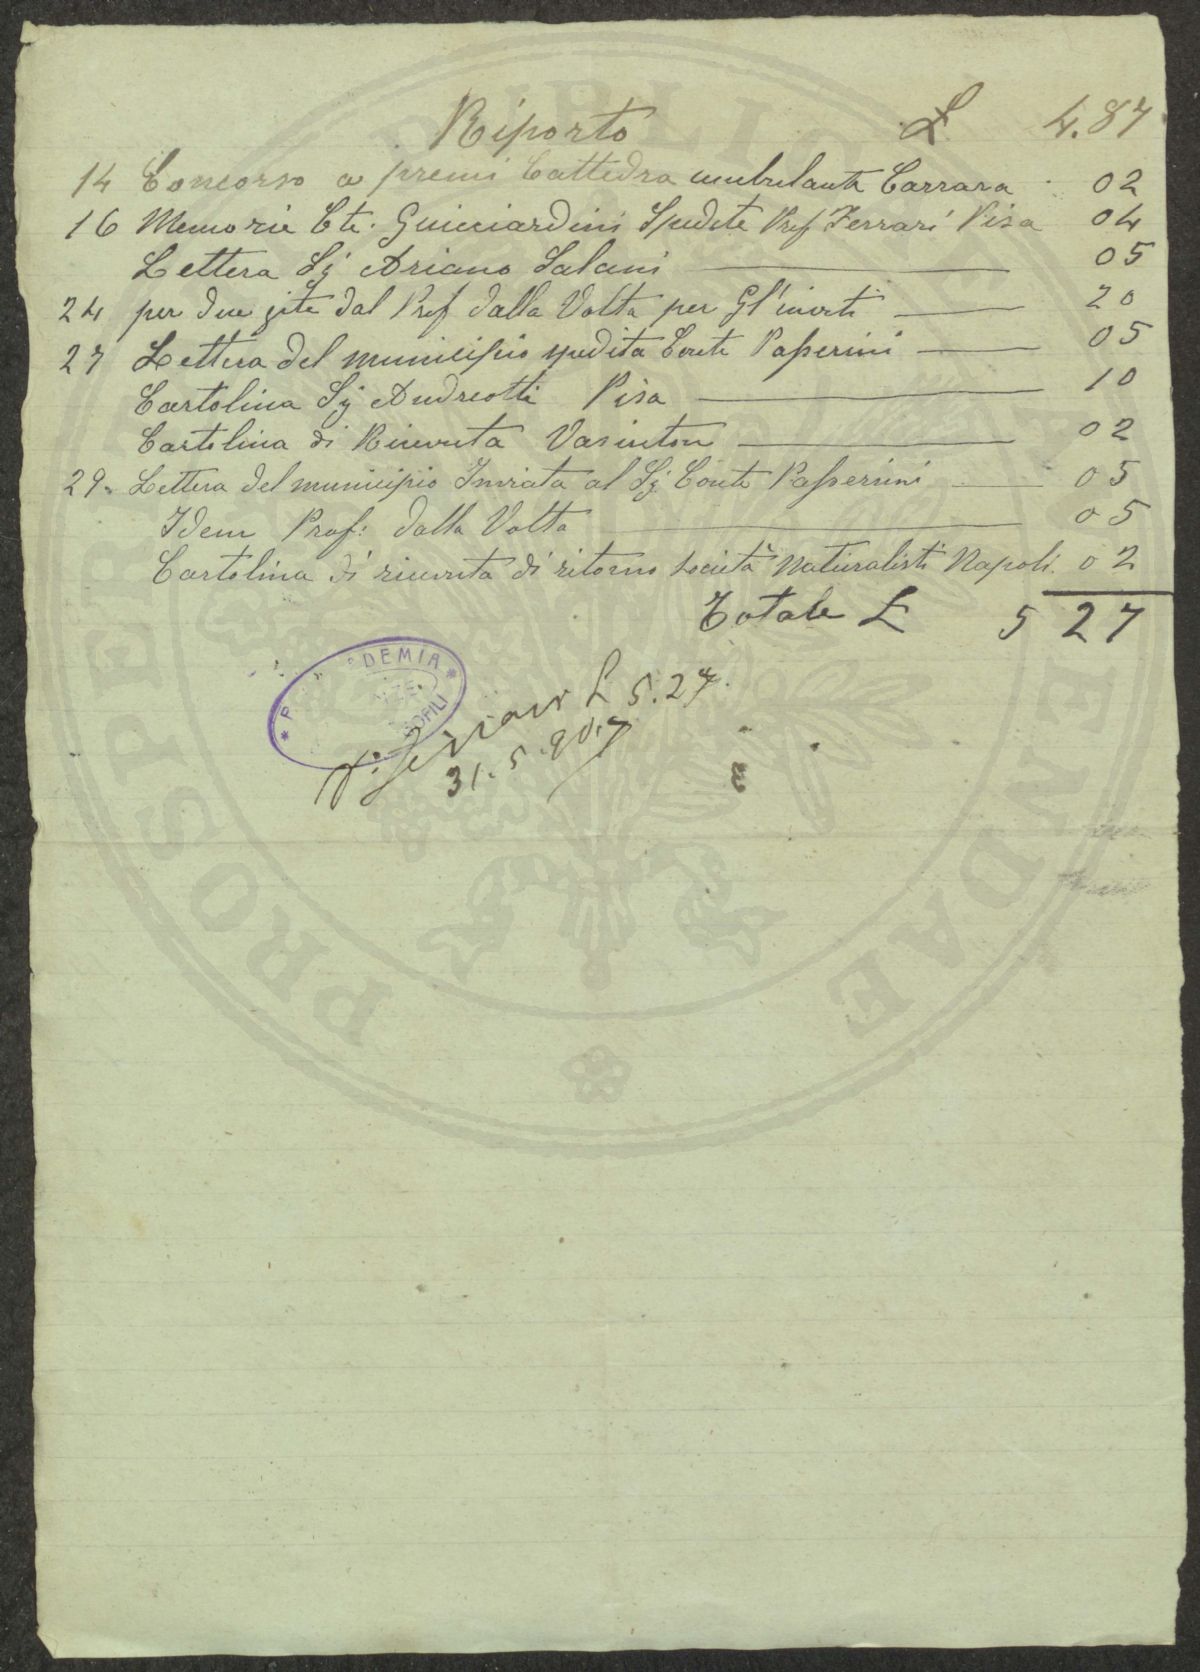 Riporto L 4.87
14 Concorso a premi Cattedra ambulante Carrara 02
16 Memorie Cte. Guicciardini Spedite Prof Ferrari Pisa 04
Lettera Sig Ariano Salani 05
24 per due gite dal Prof dalla Volta per Gl'inviti 20
27 Lettera del municipio spedita Conte Passerini 05
Cartolina Sig Andreotti Pisa 10
Cartolina di Ricevuta Vasinton 02
29. Lettera del municipio Inviata al Sig Conte Passerini 05
Idem Prof: dalla Volta 05
Cartolina di ricevuta di ritorno società Naturalisti Napoli. 02
Totale L 5 27
DEMIA
OFILI
L 5.27.
31.5.907
PUBLICAE
PROSPERITATI
AUGENDAE